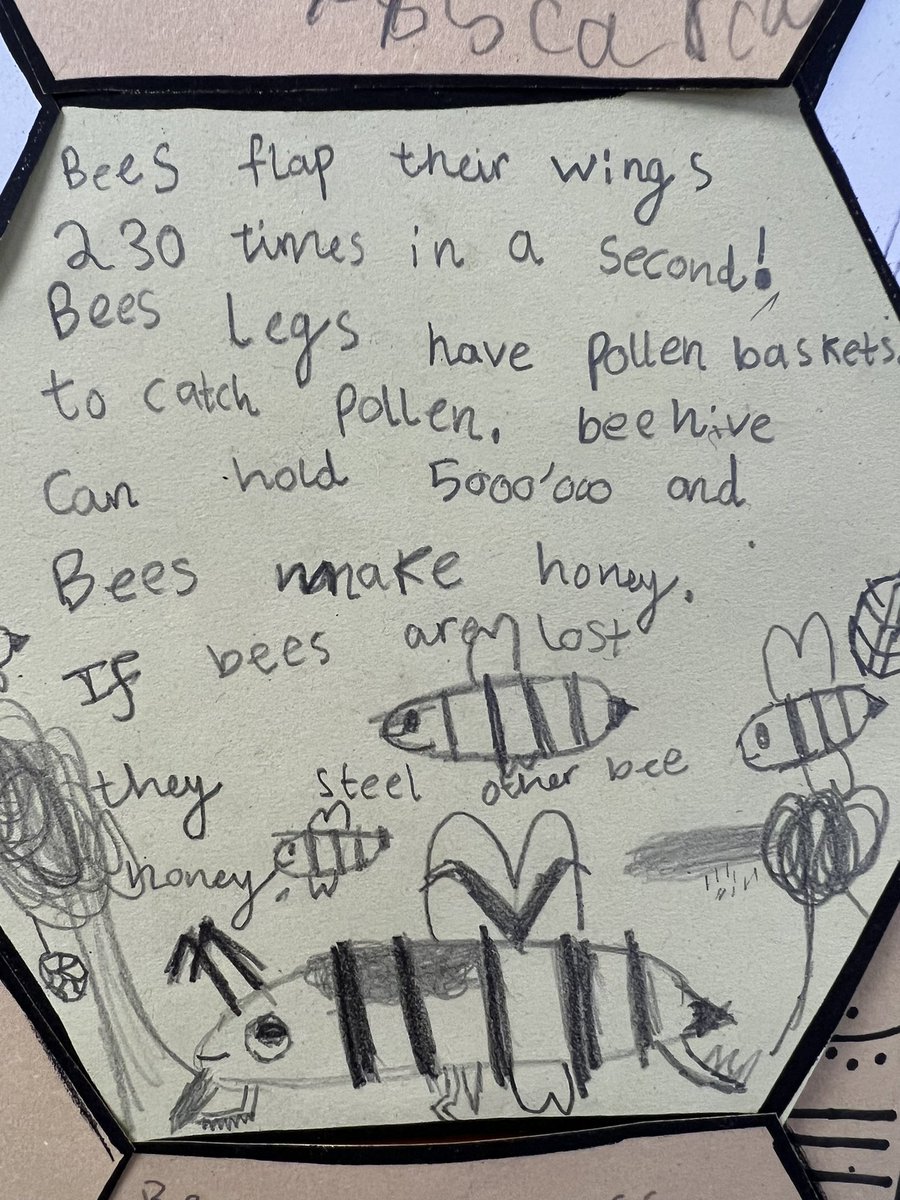 Bees flap their wings
230 times in a second!
Bees Legs have pollen baskets.
to catch pollen. beehive
can hold 5000'000 and
Bees make honey.
If bees are lost
they steel other bee
honey.